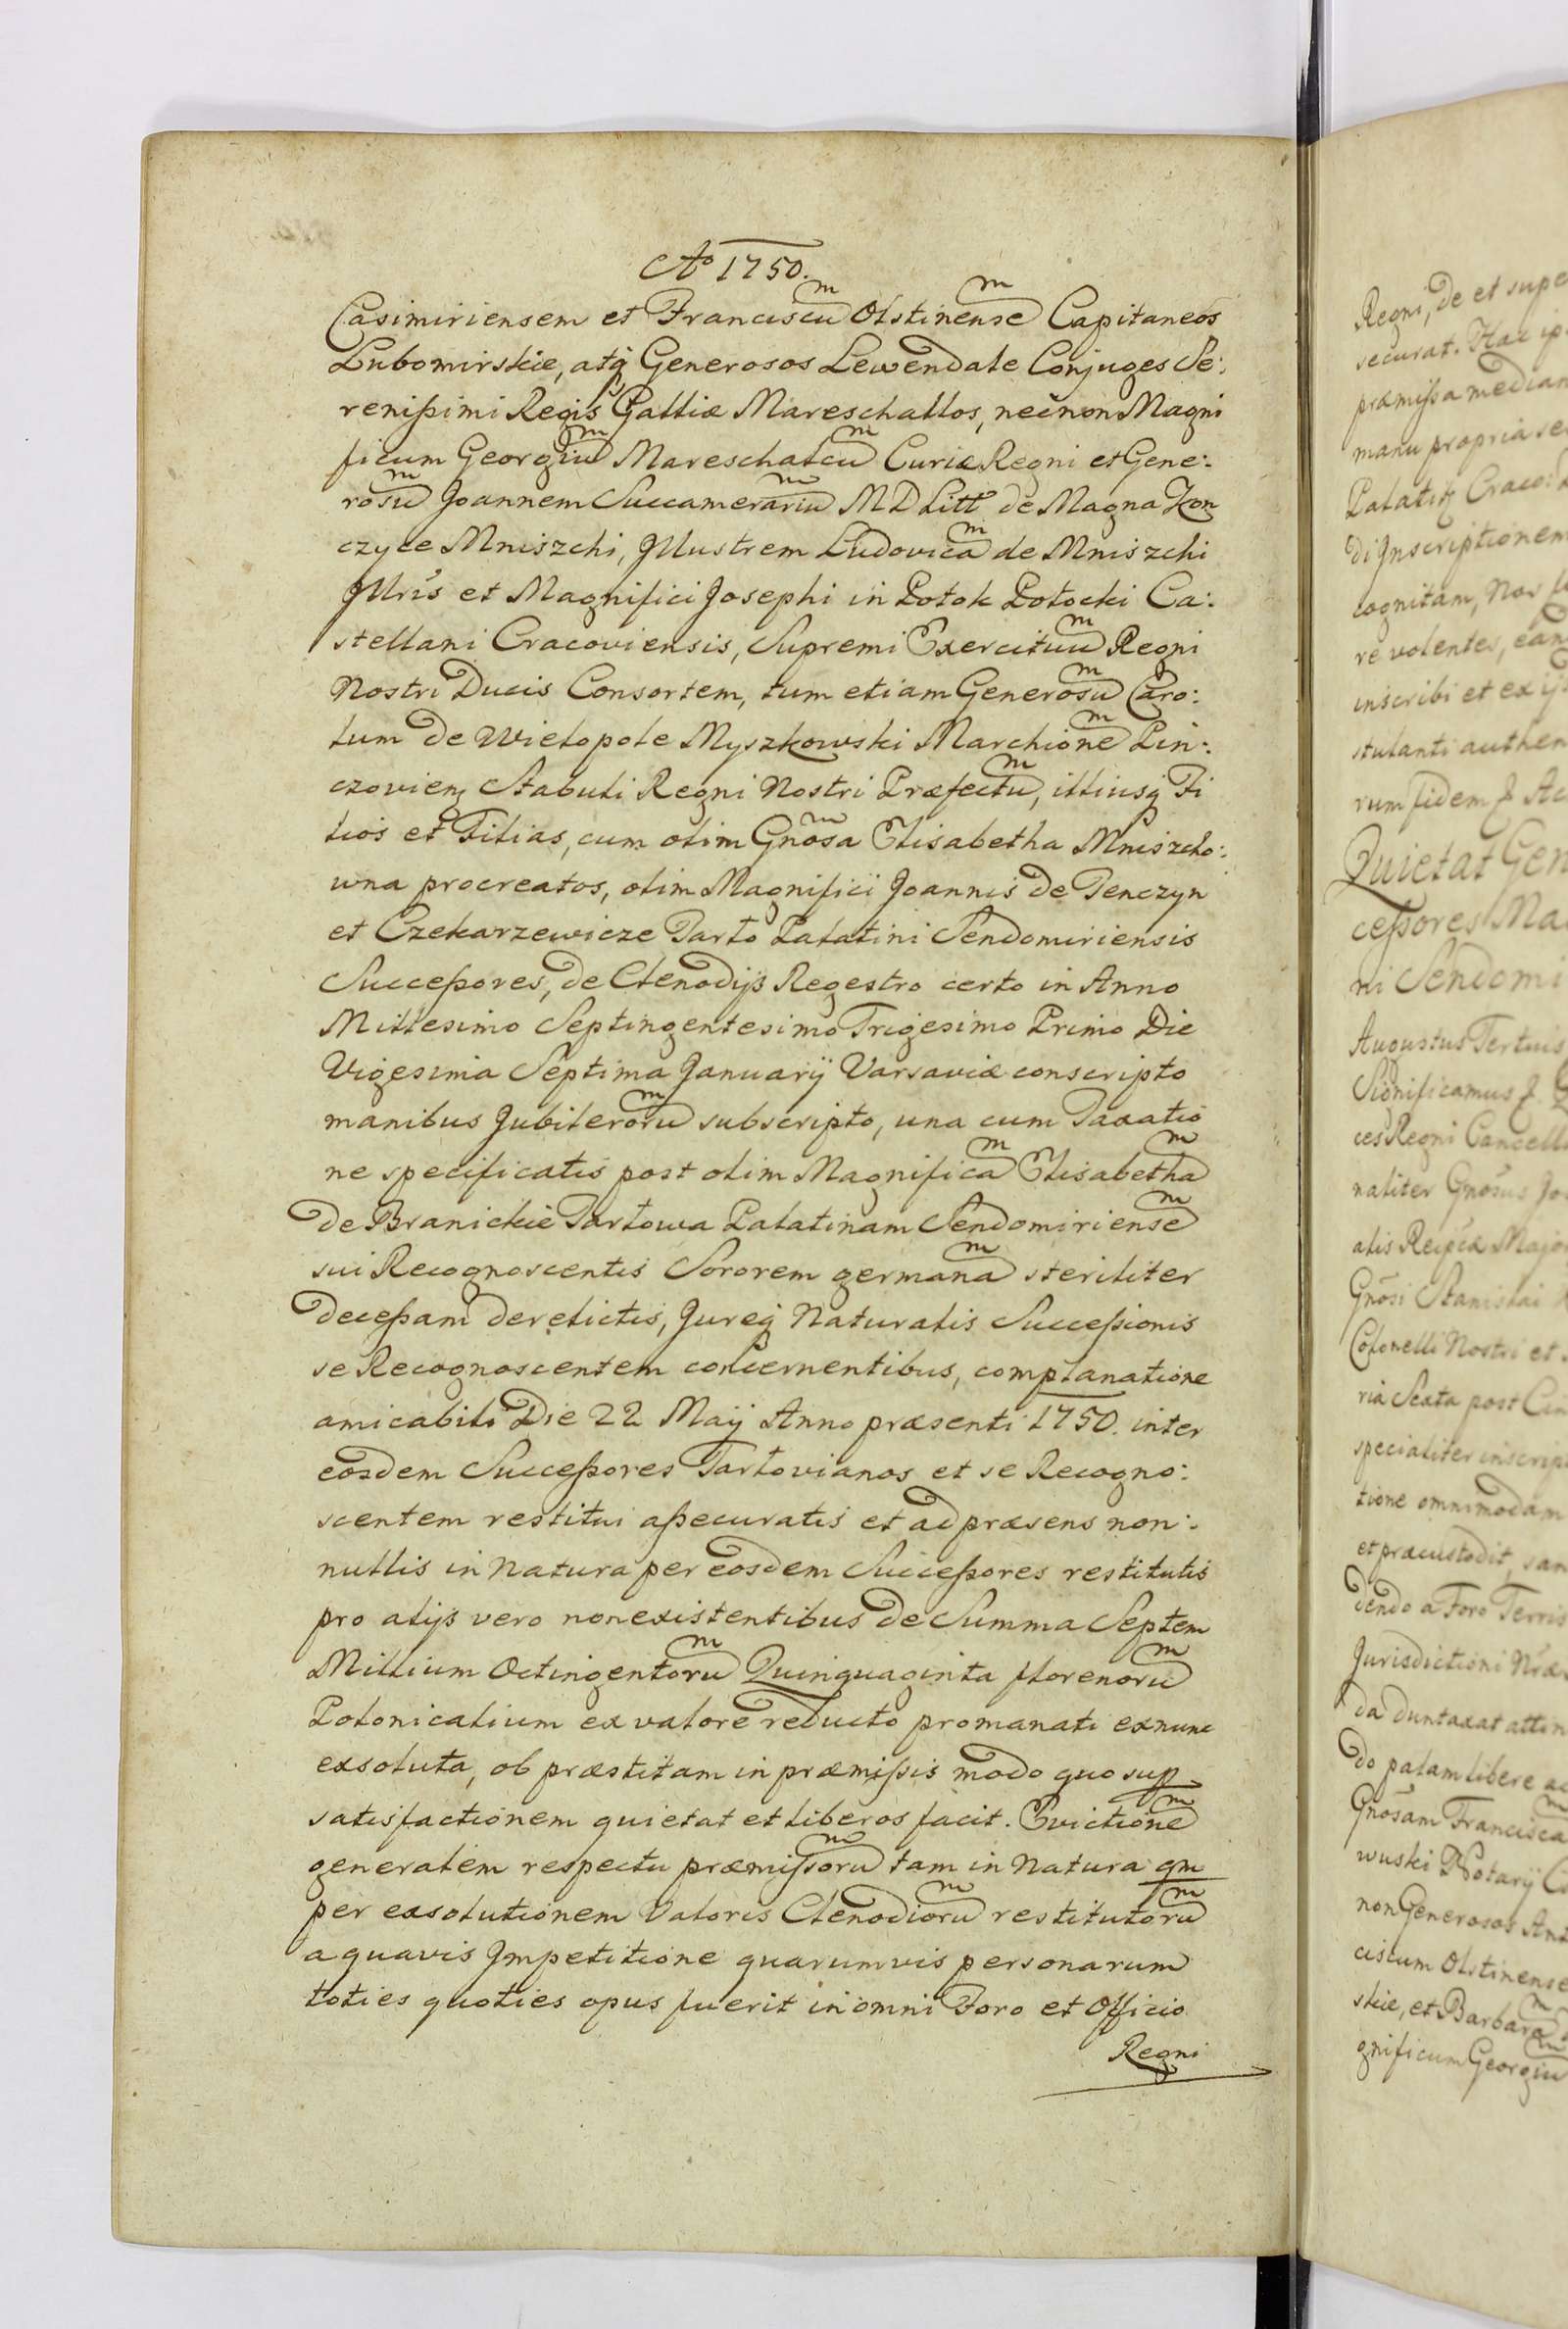 Aº 1750.
Casimiriensem et Franciscuᵐ Olstinenseᵐ Capitaneos
Lubomirskie, atq̨ Generosos Lewendale Conjuges Se:
renißimi Regis Galliæ Mareschallos, nec̃non Magni
ficum Georgiuᵐ Mareschalcuᵐ Curiæ Regni et Gene:
rosuᵐ Joannem Succamerariuᵐ M D Litt̃ de Magna Kon
czyce Mniszchi, Jllustrem Ludovicaᵐ de Mniszchi
Jllris et Magnifici Josephi in Potok Potocki Ca:
stellani Cracoviensis, Supremi Exercituuᵐ Regni
Nostri Ducis Consortem, tum etiam Generosuᵐ Caro:
lum de Wielopole Myszkowski Marchioneᵐ Pin:
czovienȝ Stabuli Regni Nostri Præfectuᵐ, illiusq̨ Fi
lios et Filias, cum olim Gnõsa Elisabetha Mniszcho:
wna procreatos, olim Magnifici Joannis de Tenczyn
et Czekarzewicze Tarło Palatini Sendomiriensis
Succeßores, de Clenodijs Regestro certo in Anno
Millesimo Septingentesimo Trigesimo Primo Die
Vigesima Septima Januarij Varsaviæ conscripto
manibus Jubileroruᵐ subscripto, una cum Taxatio
ne specificatis post olim Magnificaᵐ Elisabethaᵐ
de Branickie Tarłowa Palatinam Sendomirienseᵐ
sui Recognoscentis Sororem germanaᵐ steriliter
deceßam derelictis, Jureq̨ Naturalis Succeßionis
se Recognoscentem concernentibus, complanatione
amicabili Die 22 Maij Anno præsenti 1750. inter
eosdem Succeßores Tarłovianos et se Recogno:
scentem restitui aßecuratis et ad præsens non:
nullis in Natura per eosdem Succeßores restitutis
pro alijs vero nonexistentibus de Summa Septem
Millium Octingentoruᵐ Quinquaginta florenoruᵐ
Polonicalium ex valore reducto promanati exnunc
exsoluta, ob præstitam in præmißis modo quo sup
satisfactionem quietat et liberos facit. Evictioneᵐ
generalem respectu præmißoruᵐ tam in Natura qm
per exsolutionem Valoris Clenodioruᵐ restitutoruᵐ
a quavis Jmpetitione quarumvis personarum
toties quoties opus fuerit in omni Foro et Officio
Regni
Regni, de et supe
securat. Hac ip
præmißa median
manu propria se
Palatiȝ Craco:
di Jnscriptionem
cognitam, Nos
re volentes, ean
inscribi et ex ijs
stulanti authen
rum fidem Ac
Quietat Gen
ceßores Ma
ni Sendomi
Augustus Tertius
Significamus
ces Regni Cancell
naliter Gnõsus Jo
atis Reipcæ Major
Gnõsi Stanislai
Colonelli Nostri et
ria Sexta post Cin
specialiter inscrip
tione omnimodam
et præcustodit, san
dendo a Foro Terris
Jurisdictioni Nræ
da duntaxat attin
do palam libere ac
Gnõsam Francisca
wuski Notarij C
non Generosos Ant
ciscum Olstinense
skie, et Barbaraᵐ
gnificum Georgiuᵐ